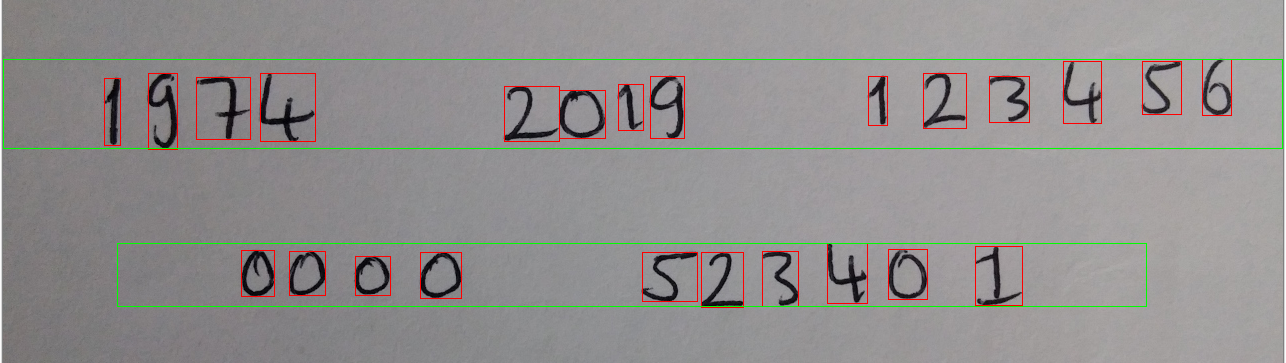 1974 2019 123456
0000 523401